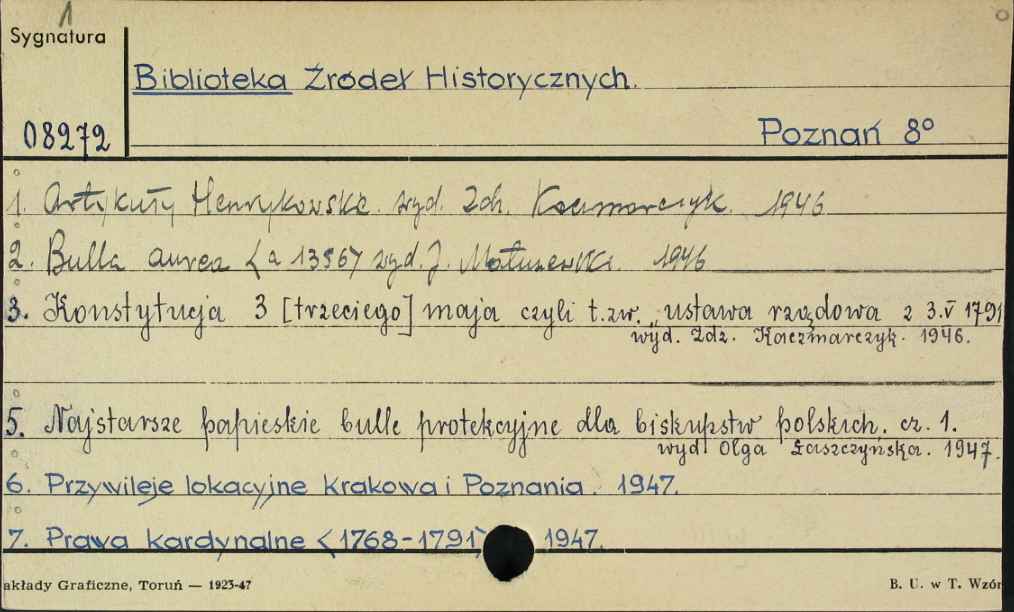 1
Sygnatura
Biblioteka Źródeł Historycznych.
08272
Poznań 8º
1. Artykuły Henrykowskie. wyd. Zdz. Kaczmarczyk. 1946
2. Bulla aurea < a 1356 > wyd. J. Matuszewski. 1946
3. Konstytucja 3 [trzeciego] maja czyli t.zw. „ustawa rządowa z 3.V 1791
wyd. Zdz. Kaczmarczyk. 1946.
5. Najstarsze papieskie bulle protekcyjne dla biskupstw polskich. cz. 1.
wyd. Olga Łaszczyńska. 1947.
6. Przywileje lokacyjne Krakowa i Poznania. 1947.
7. Prawa kardynalne <1768-1791> 1947.
akłady Graficzne, Toruń — 1923-47
B. U. w T. Wzór